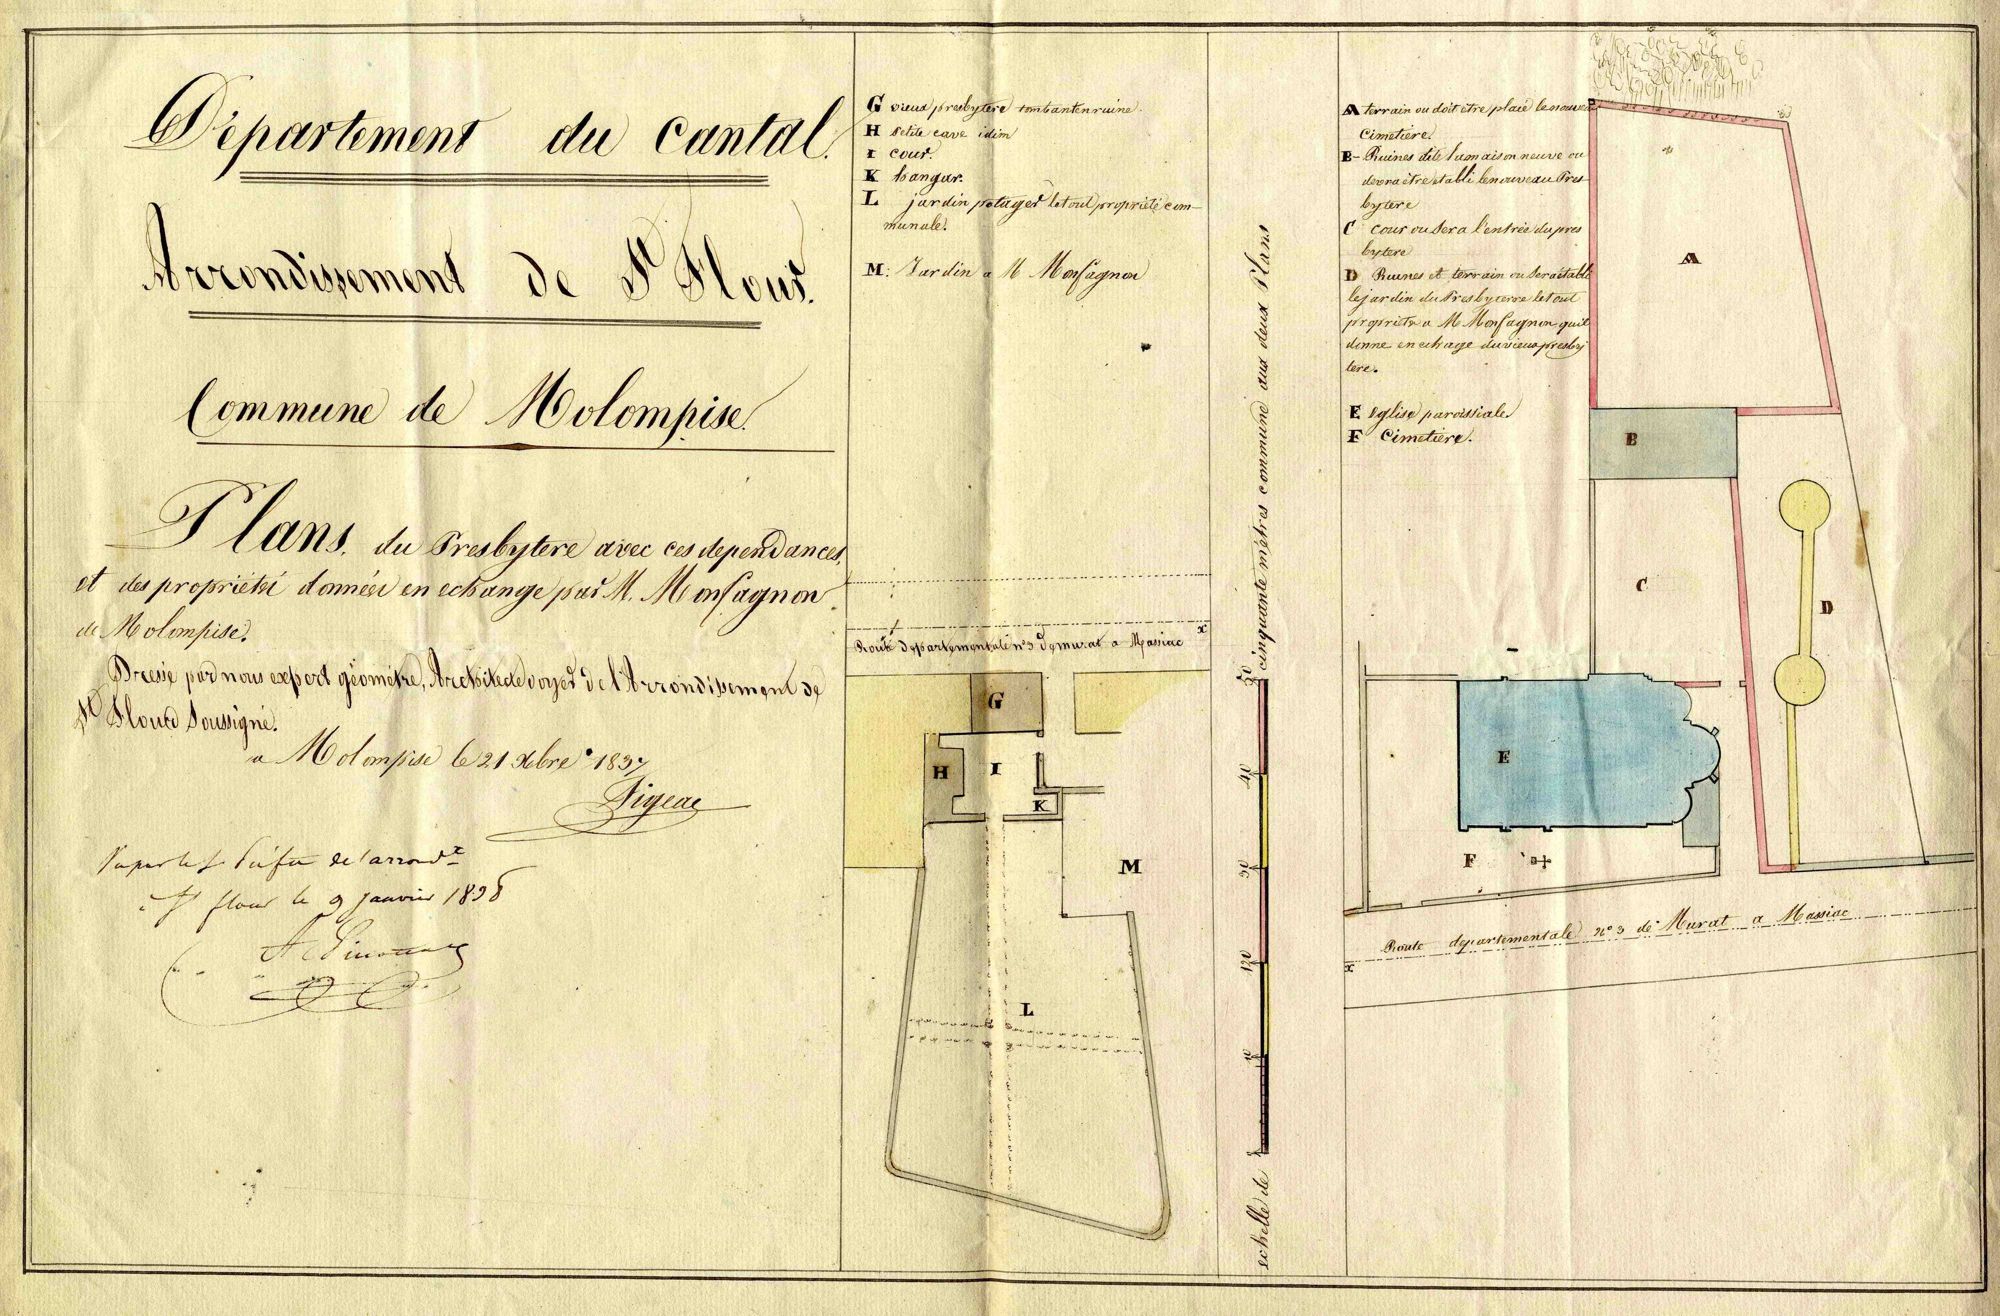 Département du Cantal.
Arrondissement de St Flour.
Commune de Molompise.
Plans. du Presbytere avec ces dependances,
et des propriétés données en echange par M. Monfagnon
de Molompise.
Dressé par nous expert géométre, Architecte voyer de l'Arrondissement de
St Flour Soussigné.
a Molompise le 21 Xbre 1837
Pigeac
Vu par le S. Préfet de l'arrondt
St flour le 9 janvier 1838
G vieux presbytere tombant en ruine.
H petite cave idim
I cour.
K hangar.
L jardin potager le tout propriété com-
munale.
M: Jardin a M Monfagnon
Route départementale n° 3 de murat a Massiac
x
G
H
I
K
M
L
echelle de cinquante métres commune aux deux Plans
50
40
30
120
10
A terrain ou doit être placé le nouveau
Cimetière.
B- Ruines dite la maison neuve ou
devra être etabli le nouveau Pres-
bytere
C cour ou Sera l'entrée du pres
bytere
D Ruines et terrain ou Sera etabli
le jardin du Presbyterre le tout
propriete a M Monfagnon quil
donne en echage du vieux presby
tere.
E Eglise paroissiale
F Cimetière.
A
B
C
D
E
F
Route départementale n° 3 de Murat a Massiac
x